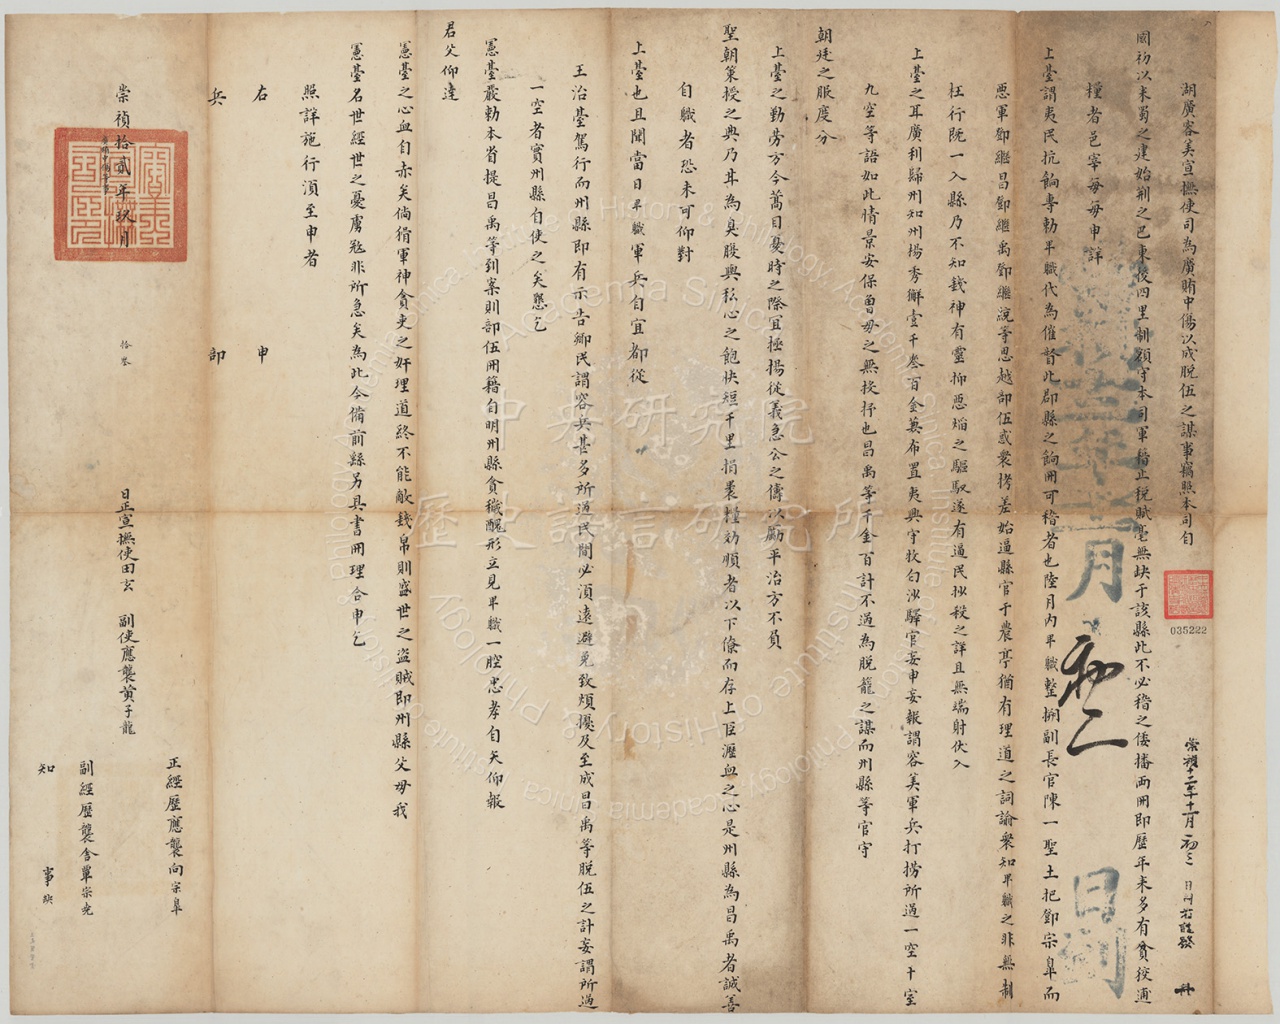 湖廣容美宣撫使司為廣賄中傷以成脫伍之謀事竊照本司自
國初以來蜀之建始荆之巴東後四里制額守本司軍糧止稅賦毫無缺于該縣此不必稽之倭播兩冊即歷年來多有貪狡逋
糧者邑宰每每申詳
上臺謂夷民抗餉專勅卑職代為催督此郡縣之餉冊可稽者也陸月內卑職整捌副長官陳一聖土把鄧宗臯而
惡軍鄧繼昌鄧繼禹鄧繼說等思越部伍或衆拷差始逼縣官于農亭猶有理道之詞諭衆知卑職之非無制
枉行旣一入縣乃不知錢神有靈抑惡燄之驅馭遂有逼民抄殺之詳且無端射伏入
上臺之耳廣利歸州知州楊秀獬壹千叁百金兼布置夷興守牧向沙驛官妄申妄報謂容美軍兵打撈所過一空十室
九空等語如此情景安保曾母之無投抒也昌禹等千金百計不過為脫籠之謀而州縣等官守
朝廷之服度分
上臺之勤勞方今蒿目憂時之際冝極揚從義急公之儔以勵平治方不負
聖朝策授之典乃甘為臭股與私心之飽怏短千里捐裹糧効順者以下僚而存上臣瀝血之心是州縣為昌禹者誠善
自職者恐未可仰對
上臺也且聞當日卑職軍兵自宜都從
王治臺駕行而州縣即有示告鄉民謂容兵甚多所過民間必湏遠避免致煩擾及至成昌禹等脫伍之計妄謂所過
一空者實州縣自使之矣懇乞
憲臺嚴勅本省提昌禹等到案則部伍冊籍自明州縣貪穢醜形立見卑職一腔忠孝自矢仰報
君父仰達
憲臺之心血自赤矣倘猾軍神貪吏之奸理道終不能敵錢帛則盛世之盜賊即州縣父母我
憲臺名世經世之憂虜寇非所急矣為此今備前繇另具書冊理合申乞
照詳施行湏至申者
右 申
兵 部
崇禎拾貳年玖月
拾叁
日正宣撫使田玄 副使應襲黃子龍
正經歷應襲向宗臯
副經歷襲舍覃宗堯
知 事 缺
崇禎十二年十一月初三日
月 初二 日到
035222
中央研究院
歷史語言研究所
Institute of History & Philology Academia Sinica